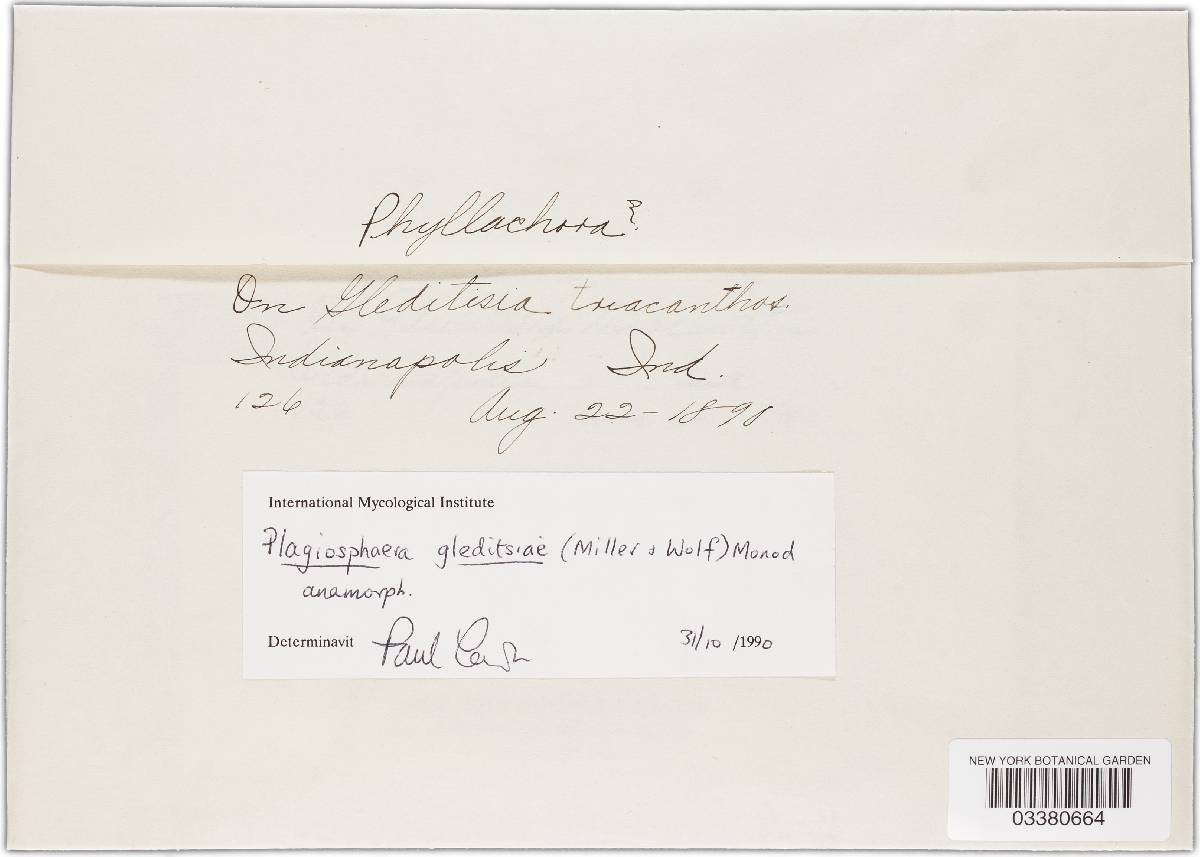 Phyllachora?
On Gleditisia triacanthos.
Indianapolis Ind.
126 Aug. 22-1890
International Mycological Institute
Plagiosphaera gleditsiae (Miller & Wolf) Monod
anamorph.
Determinavit Paul
31/10/1990
NEW YORK BOTANICAL GARDEN
03380664